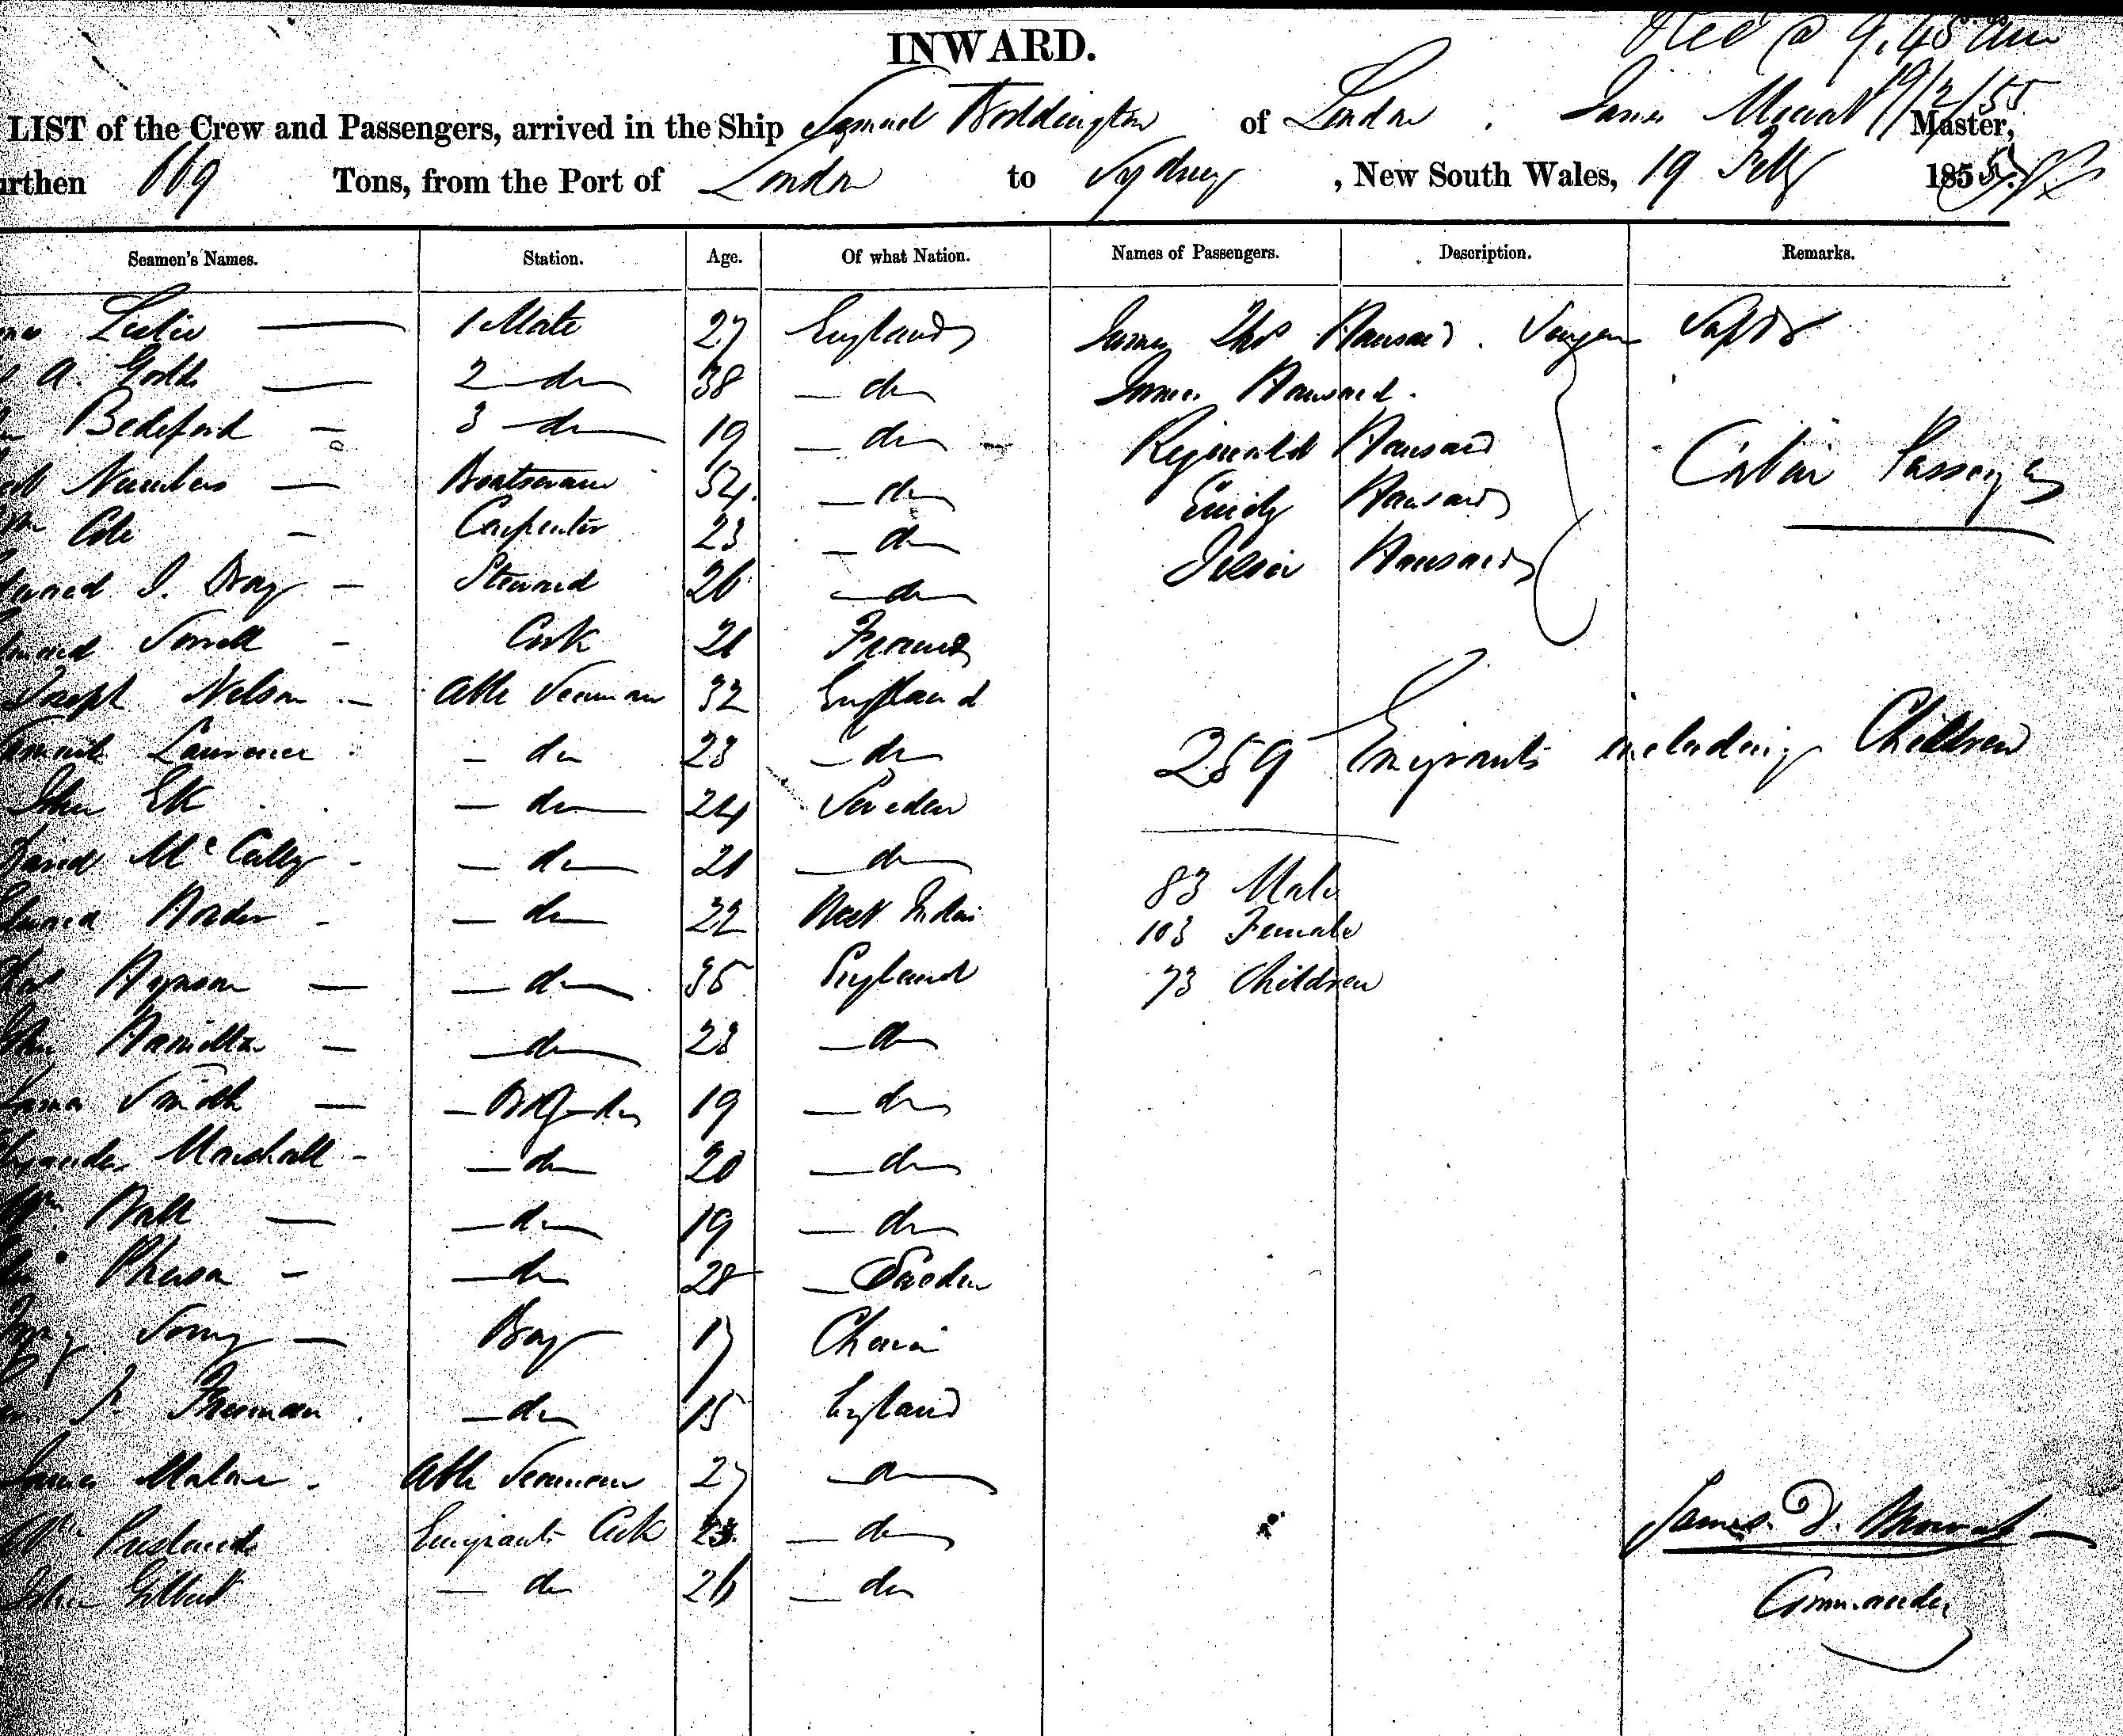 Recd @ 9.45 am
INWARD.
19/2/55
LIST of the Crew and Passengers, arrived in the Ship Samuel Boddington of London James Mowat Master,
urthen 669 Tons, from the Port of London to Sydney , New South Wales, 19 Feby 1855
Seamen's Names. Station. Age. Of what Nation. Names of Passengers. Description. Remarks.
Leslie 1 Mate 27 England James Thos Hansard. Surgeon Supdt
A. 2 do 38 do James Hansard.
Bedeford 3 do 19 do Reginald Hansard
Boatswain 34 do Emily Hansard Cabin Passengers
Wm Cole Carpenter 23 do Hansard
Edward J. Bray Steward 26 do
Edward Cook 21 France
Joseph Nelson Able Seaman 32 England
Laurence do 23 do 259 Emigrants including Children
John Ek do 24 Sweden
David McCally do 21 do 83 Male
Edward do 22 West Indies 103 Female
Thos Hynson do 35 England 73 Children
John Hamilton do 23 do
James Smith do 19 do
Marshall do 20 do
Wm Ball do 19 do
do 28 Sweden
Boy 17 China
Freeman do 15 England
James Malone Able Seaman 27 do James D. Mowat
Wm Emigrants Cook 23 do
John Gilbert do 26 do Commander